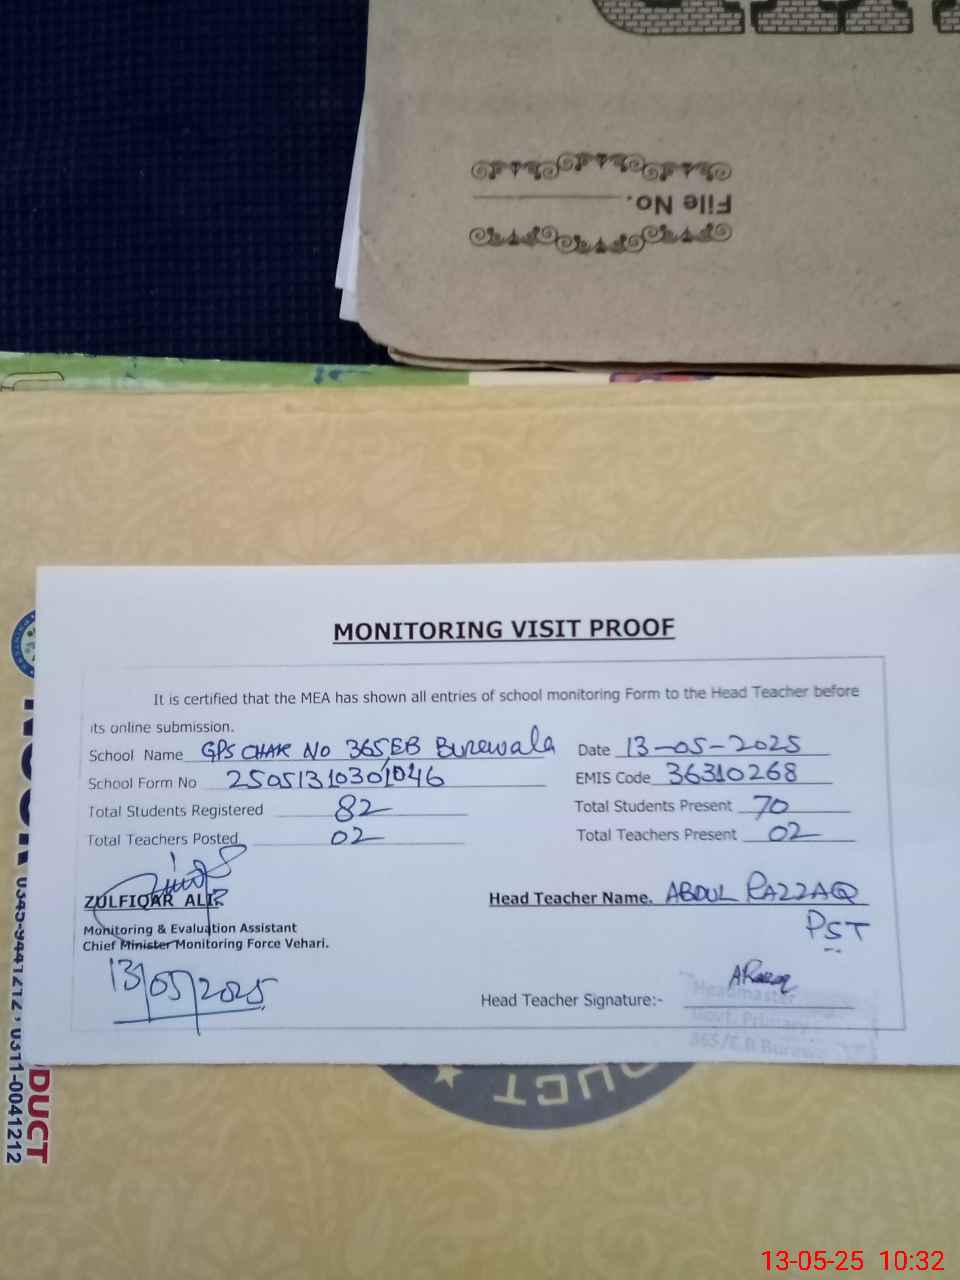 File No.
MONITORING VISIT PROOF
It is certified that the MEA has shown all entries of school monitoring Form to the Head Teacher before
its online submission.
School Name GPS CHAK No 365/EB Burewala Date 13-05-2025
School Form No 25051310301046 EMIS Code 36310268
Total Students Registered 82 Total Students Present 70
Total Teachers Posted 02 Total Teachers Present 02
ZULFIQAR ALI Head Teacher Name. ABDUL RAZZAQ
PST
Monitoring & Evaluation Assistant
Chief Minister Monitoring Force Vehari.
13/05/2025
Head Teacher Signature:- ARazzaq
Headmaster
Govt. Primary
365/E.B Burewa
0345-9441212, 0311-0041212
DUCT
13-05-25 10:32